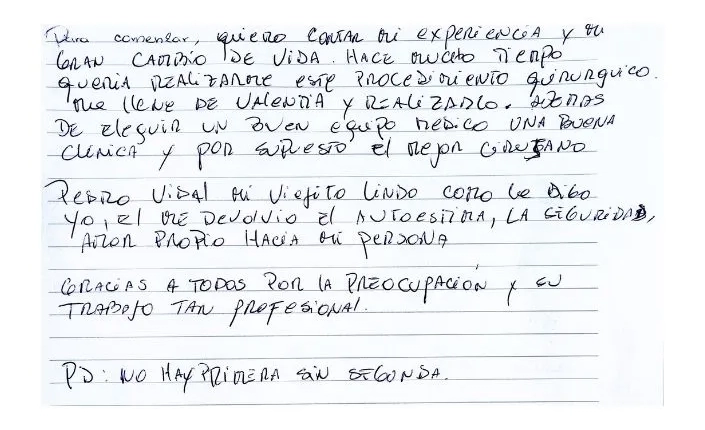 Para comenzar, quiero contar mi experiencia y mi
gran cambio de vida. Hace mucho tiempo
queria realizarme este procedimiento quirurguico.
me llene de valentia y realizarlo. Ademas
de eleguir un buen equipo medico una buena
clinica y por supuesto el mejor cirujano
Pedro Vidal mi viejito lindo como le digo
yo, el me devolvio el autoestima, la seguridad,
amor propio hacia mi persona
Gracias a todos por la preocupación y su
trabajo tan profesional.
PD: No hay primera sin segunda.